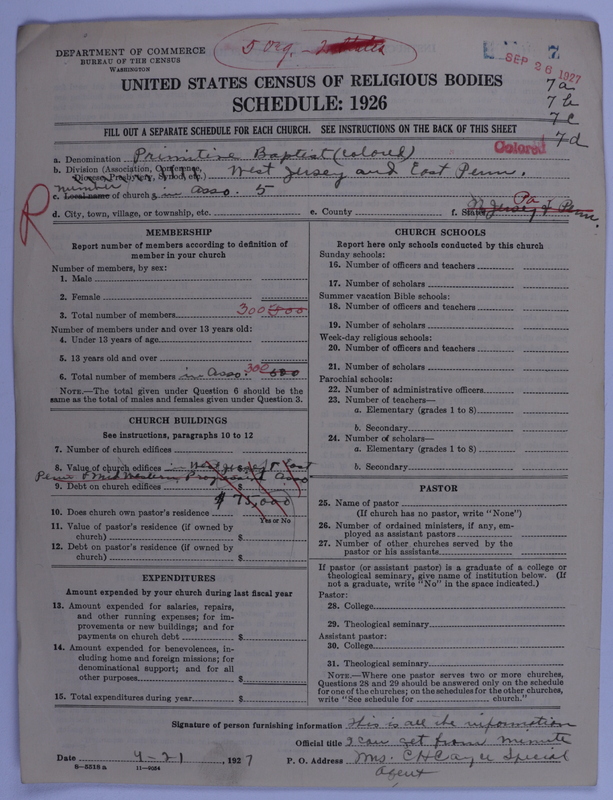 5 Org -
DEPARTMENT OF COMMERCE
BUREAU OF THE CENSUS
WASHINGTON
7
SEP 26 1927
UNITED STATES CENSUS OF RELIGIOUS BODIES
7a
7b
SCHEDULE: 1926
7c
FILL OUT A SEPARATE SCHEDULE FOR EACH CHURCH. SEE INSTRUCTIONS ON THE BACK OF THIS SHEET
7d
Colored
a. Denomination Primitive Baptist (colored)
b. Division (Association, Conference, Diocese, Presbytery, Synod, etc.) West Jersey and East Penn.
number
c. Local name of church s in Asso. 5
R
Pa
d. City, town, village, or township, etc. e. County f. State N Jersey & Penn.
MEMBERSHIP
Report number of members according to definition of
member in your church
Number of members, by sex:
1. Male
2. Female
3. Total number of members 300
Number of members under and over 13 years old:
4. Under 13 years of age
5. 13 years old and over
6. Total number of members in Asso. 300
NOTE.—The total given under Question 6 should be the
same as the total of males and females given under Question 3.
CHURCH BUILDINGS
See instructions, paragraphs 10 to 12
7. Number of church edifices
8. Value of church edifices in West Jersey & East
Penn & Mid Western Progressive Asso
9. Debt on church edifices
$ 75,000
10. Does church own pastor's residence
Yes or No
11. Value of pastor's residence (if owned by
church) $
12. Debt on pastor's residence (if owned by
church) $
EXPENDITURES
Amount expended by your church during last fiscal year
13. Amount expended for salaries, repairs,
and other running expenses; for im-
provements or new buildings; and for
payments on church debt $
14. Amount expended for benevolences, in-
cluding home and foreign missions; for
denominational support; and for all
other purposes $
15. Total expenditures during year $
CHURCH SCHOOLS
Report here only schools conducted by this church
Sunday schools:
16. Number of officers and teachers
17. Number of scholars
Summer vacation Bible schools:
18. Number of officers and teachers
19. Number of scholars
Week-day religious schools:
20. Number of officers and teachers
21. Number of scholars
Parochial schools:
22. Number of administrative officers
23. Number of teachers—
a. Elementary (grades 1 to 8)
b. Secondary
24. Number of scholars—
a. Elementary (grades 1 to 8)
b. Secondary
PASTOR
25. Name of pastor
(If church has no pastor, write "None")
26. Number of ordained ministers, if any, em-
ployed as assistant pastors
27. Number of other churches served by the
pastor or his assistants
If pastor (or assistant pastor) is a graduate of a college or
theological seminary, give name of institution below. (If
not a graduate, write "No" in the space indicated.)
Pastor:
28. College
29. Theological seminary
Assistant pastor:
30. College
31. Theological seminary
NOTE.—Where one pastor serves two or more churches,
Questions 28 and 29 should be answered only on the schedule
for one of the churches; on the schedules for the other churches,
write "See schedule for church."
Signature of person furnishing information This is all the information
Official title I can get from minute
Date 4-21, 1927 P. O. Address Mrs. C H Cayce Special
8-5318a 11-9054 Agent